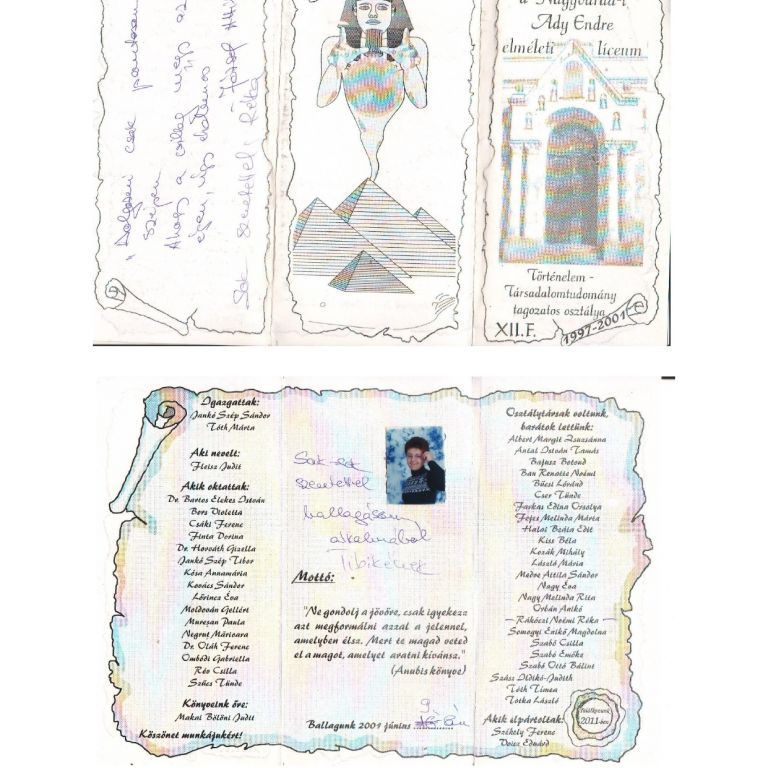 "Dolgozni csak pontosan,
szépen
Ahogy a csillag megy az
égen, úgy érdemes"
József Attila
Sok szeretettel, Réka
a Nagyváradi
Ady Endre
elméleti líceum
Történelem -
Társadalomtudomány
tagozatos osztálya
XII.F.
1997-2001
Igazgattak:
Jankó Szép Sándor
Tóth Márta
Aki nevelt:
Fleisz Judit
Akik oktattak:
Dr. Bartos Elekes István
Bors Violetta
Csáki Ferenc
Finta Dorina
Dr. Horváth Gizella
Jankó Szép Tibor
Kósa Annamária
Kovács Sándor
Lőrincz Éva
Moldován Gellért
Mureşan Paula
Negruţ Mărioara
Dr. Oláh Ferenc
Ombódi Gabriella
Rév Csilla
Szűcs Tünde
Könyveink őre:
Makai Bölöni Judit
Köszönet munkájukért!
Sok-sok
szeretettel
ballagásom
alkalmából
Tibikének
Mottó:
"Ne gondolj a jövőre, csak igyekezz
azt megformálni azzal a jelennel,
amelyben élsz. Mert te magad veted
el a magot, amelyet aratni kívánsz."
(Anubis könyve)
Ballagunk 2001 június 9
Osztálytársak voltunk,
barátok lettünk:
Albert Margit Zsuzsánna
Antal István Tamás
Bajusz Botond
Bán Renáta Noémi
Bücsi Lóránd
Cser Tünde
Farkas Edina Orsolya
Fejes Melinda Mária
Halai Beáta Edit
Kiss Béla
Kozák Mihály
László Mária
Medve Attila Sándor
Nagy Éva
Nagy Melinda Rita
Orbán Anikó
Rákóczi Noémi Réka
Somogyi Enikő Magdolna
Szabó Csilla
Szabó Emőke
Szabó Ottó Bálint
Szász Ildikó-Judith
Tóth Tímea
Tótka László
Akik elpártoltak:
Székely Ferenc
Veisz Eduárd
Találkozunk
2011-ben